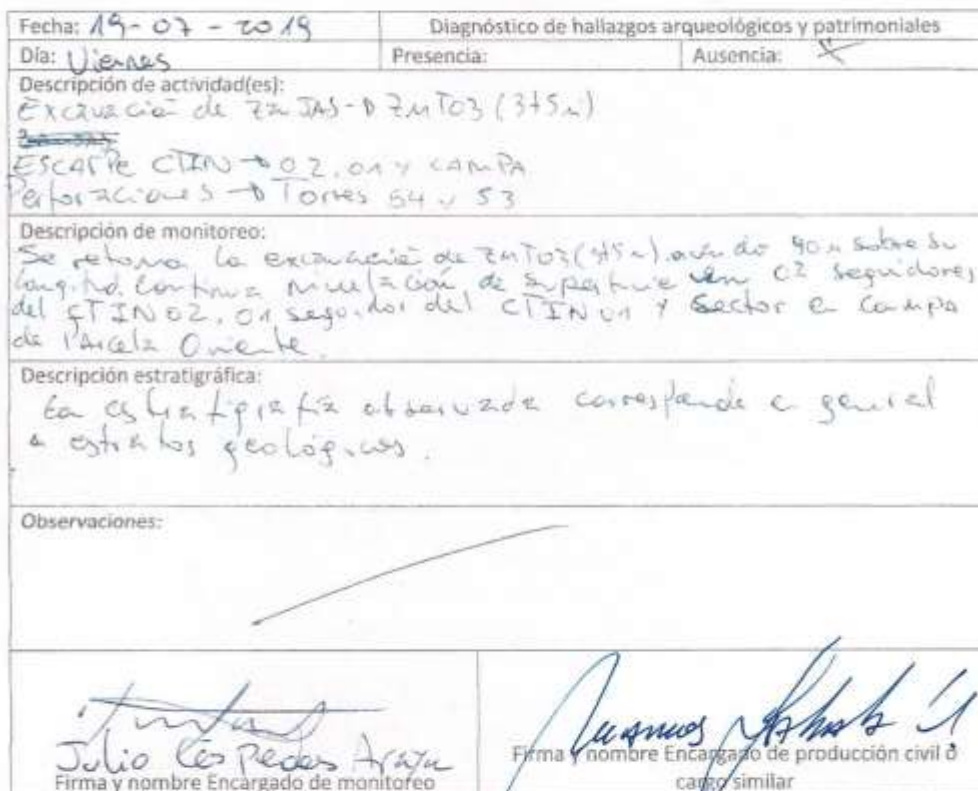 Fecha: 19-07-2019 Diagnóstico de hallazgos arqueológicos y patrimoniales
Día: Viernes Presencia: Ausencia: X
Descripción de actividad(es):
Excavación de ZANJAS → ZMT03 (375m)
ESCARPE CTIN → 02, 01 y CAMPA
Perforaciones → Torres 54 y 53
Descripción de monitoreo:
Se retoma la excavación de ZMT03 (375m) 90m sobre su
longitud. Continua nivelación de superficie en 02 seguidores
del CTIN02, 01 seguidor del CTIN01 y Sector e Campa
de Parcela Oriente.
Descripción estratigráfica:
La estratigrafía observada corresponde e general
a estratos geológicos.
Observaciones:
Julio Cespedes Araya
Firma y nombre Encargado de monitoreo
Firma y nombre Encargado de producción civil o
cargo similar